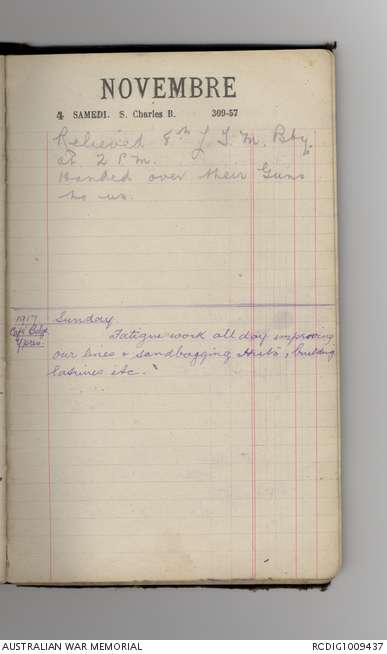 NOVEMBRE
4 SAMEDI. S. Charles B. 309-57
Relieved 8th L. T. M. Bty.
at 2 P.M.
Handed over their Guns
to us.
1917 Sunday
Ypres.
Fatigue work all day improving
our lines & sandbagging Huts, building
latrines etc.
AUSTRALIAN WAR MEMORIAL RCDIG1009437